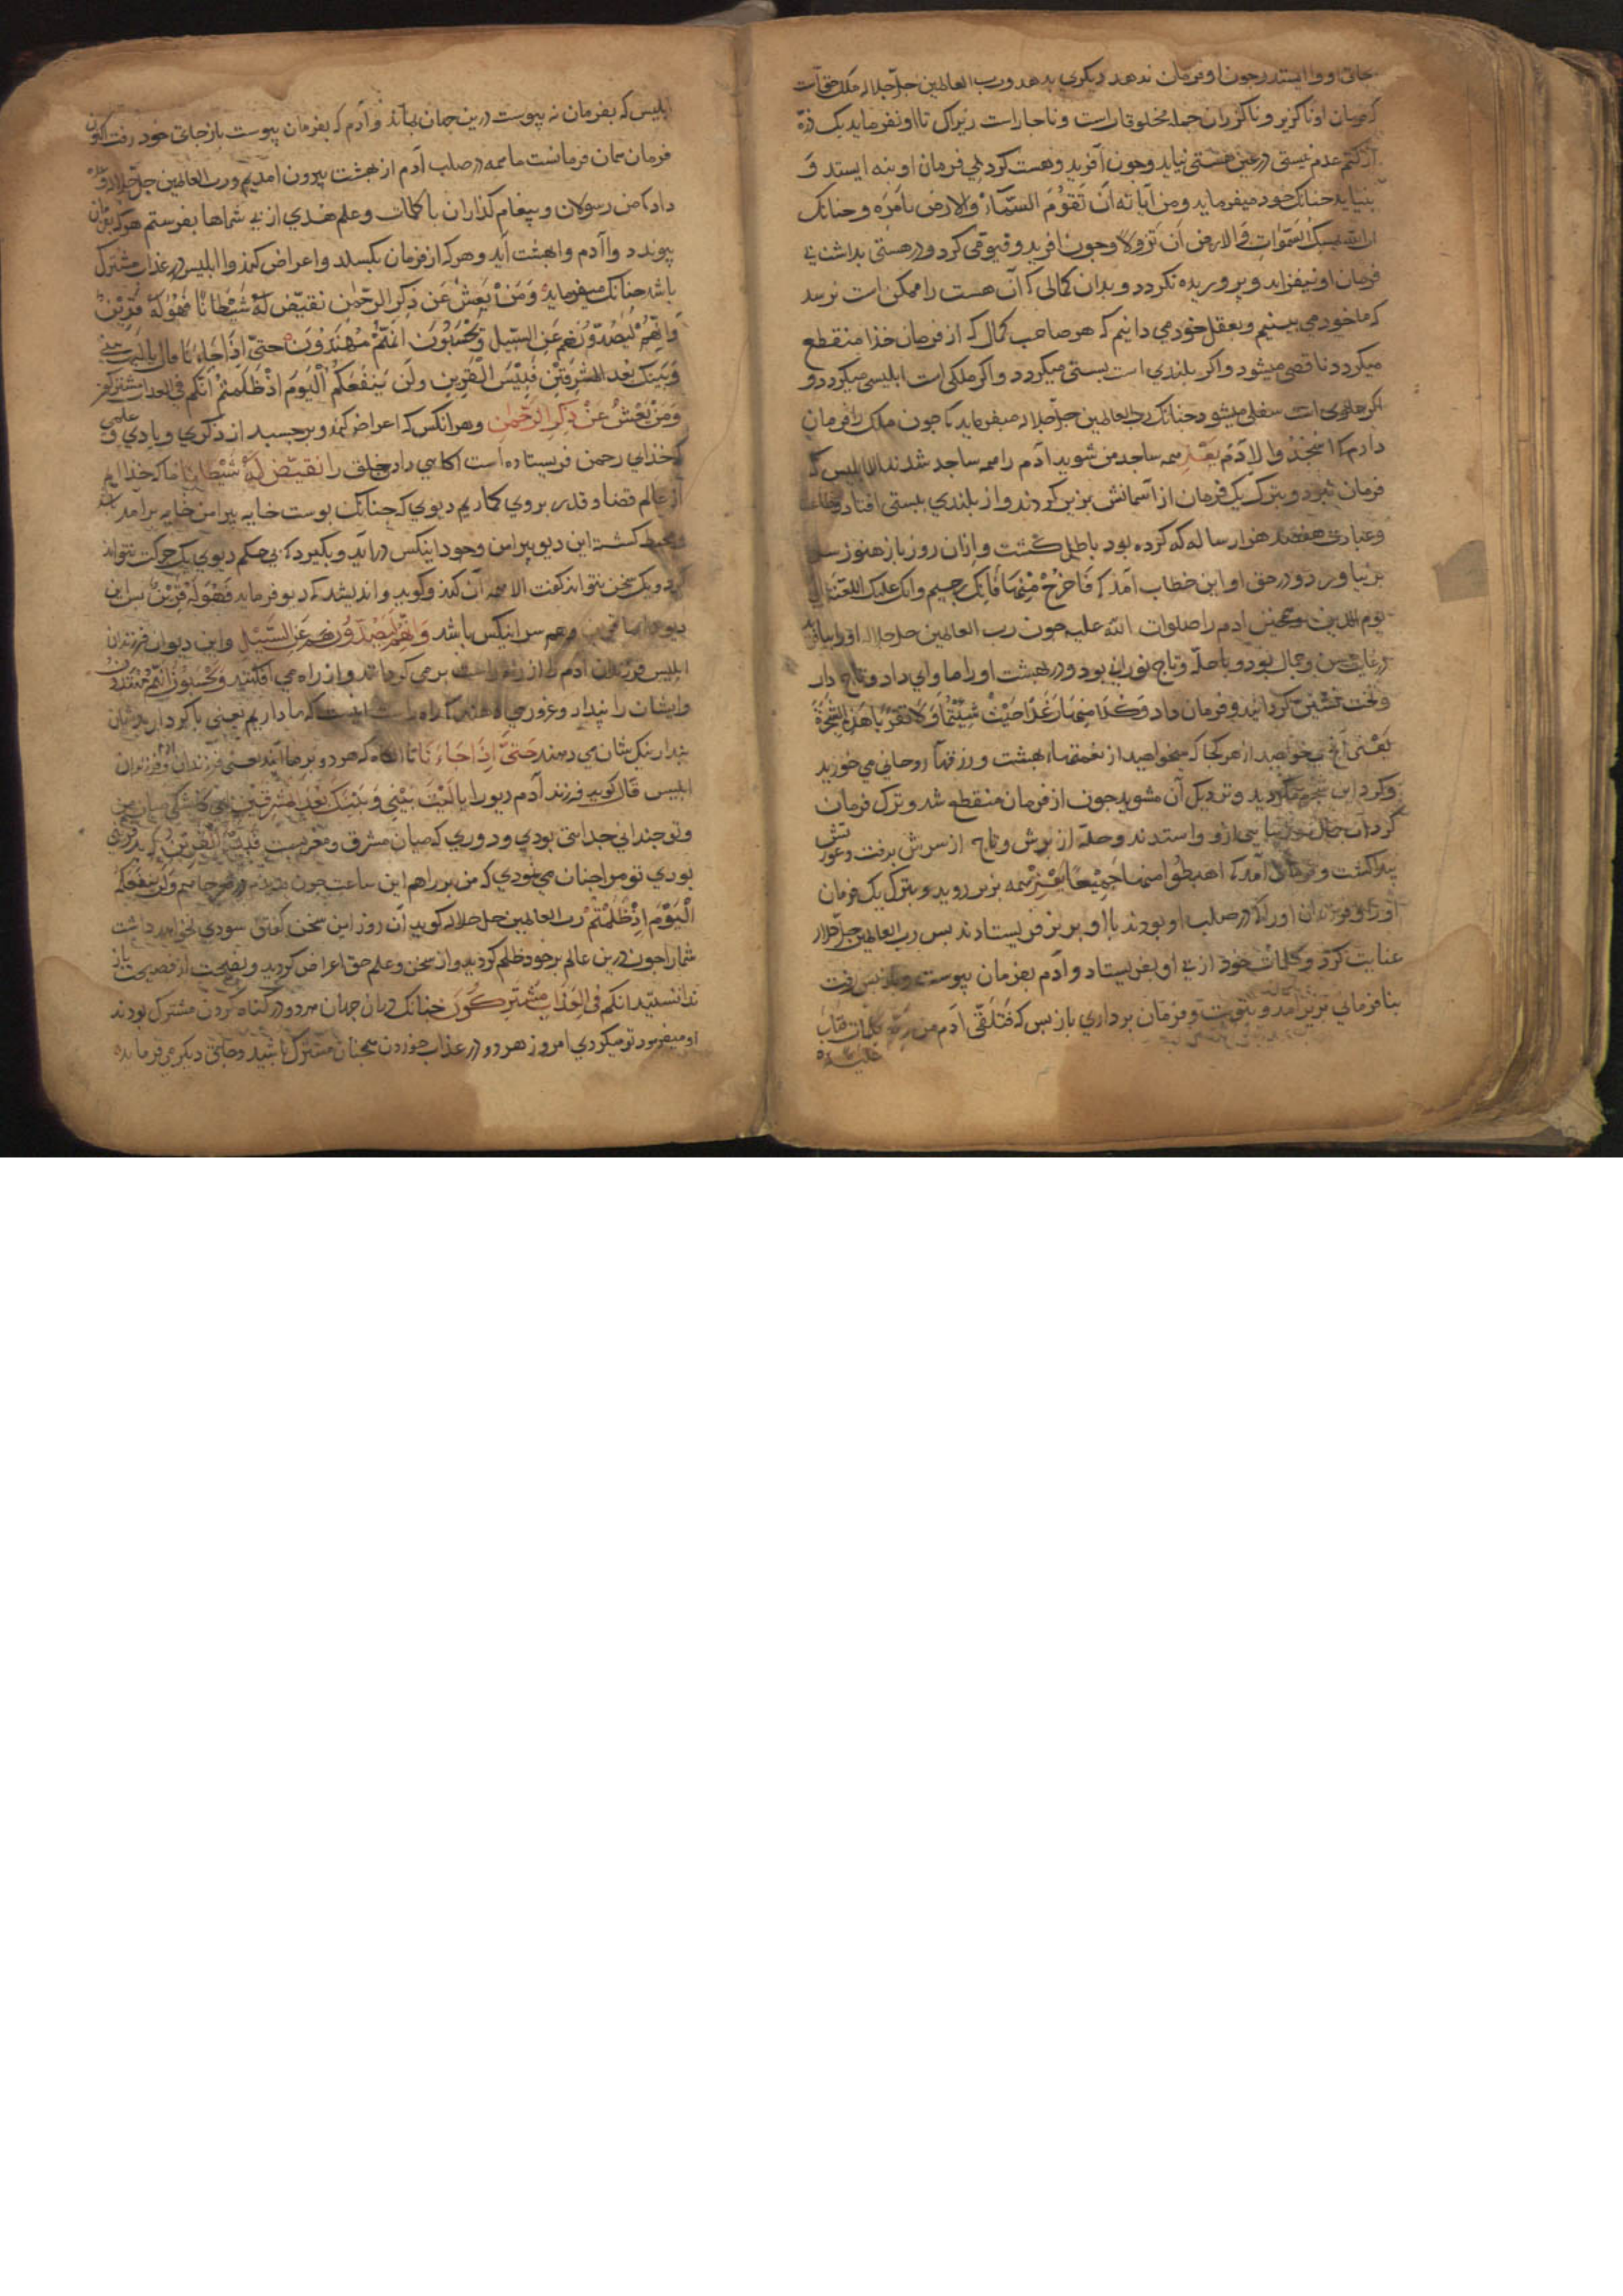 بجای او وا ایستد و چون او فرمان ندهد دیکری بدهد و رب العالمین جل جلاله ملک حق است
که فرمان او ناکزیر و ناکزران جمله مخلوقات است و ناچار است زیراک تا او نفرماید یک ذره
از کتم عدم نیستی در عین هستی نیاید و چون آفرید و هست کرد بی فرمان او بنه ایستد و
بنیاید چنانک خود میفرماید و من آیاته ان تقوم السماء والارض بامره و چنانک
ان الله یمسک السموات والارض ان تزولا و چون آفرید و قیومی کرد و در هستی بداشت بی
فرمان او نیفزاید و پروریده نکردد و بدان کمالی که آن هست را ممکن است نرسد
که ما خود می بینیم و بعقل خود می دانیم که هر صاحب کمال که از فرمان خدا منقطع
میکردد ناقص میشود و اکر بلندی است بستی میکردد و اکر ملکی است ابلیسی میکردد و
اکر علوی است سفلی میشود چنانک رب العالمین جل جلاله میفرماید تا چون ملک را فرمان
دادم که اسجدوا لادم یعنی همه ساجد من شوید آدم را همه ساجد شدند الا ابلیس که
فرمان نبرد و بترک یک فرمان از آسمانش بزیر کردند و از بلندی ببستی افتاد و
و عبادت هفتصد هزار ساله که کرده بود باطل کشت و ازان روز باز هنوز سر
بر نیاورد و در حق او این خطاب آمد که فاخرج منها فانک رجیم وان علیک اللعنة الی
یوم الدین و همچنین ادم را صلوات الله علیه چون رب العالمین جل جلاله او را
در غایت حسن و جمال بود و با حله و تاج نورانی بود و در بهشت او را ماوای داد و تاج دار
و تخت نشین کردانید و فرمان داد و کلا منها رغدا حیث شئتما و لا تقربا هذه الشجرة
یعنی آنچ میخواهید از هر کجا که میخواهید از نعمتهاء بهشت و رزقهاء روحانی می خورید
و کرد این شجره مکردید و نزدیک آن مشوید چون از فرمان منقطع شد و ترک فرمان
کرد آن جمال نورانی ازو واستدند و حله از برش و تاج از سرش برفت و عورتش
پیدا کشت و فرمان آمد که اهبطوا منها جمیعا یعنی همه بزیر روید و بترک یک فرمان
او را و فرزندان او را که در صلب او بودند با او بزیر فریستادند بس رب العالمین جل جلاله
عنایت کرد و کلمات خود از پی او بفریستاد و آدم بفرمان بپیوست و باز بس رفت
بنافرمانی بزیر آمد و بتوبت و فرمان برداری باز بس که فتلقی آدم من ربه کلمات فتاب
علیه
ابلیس که بفرمان نه پیوست درین جهان بماند و آدم که بفرمان پیوست باز جای خود رفت اکنون
فرمان همان فرمانست ما همه در صلب آدم از بهشت بیرون آمدیم و رب العالمین جل جلاله
داد که من رسولان و پیغام کذاران با کلمات و علم هدی از پی شماها بفرستم هر که بفرمان
پیوندد وا آدم وا بهشت آید و هر که از فرمان بکسلد و اعراض کند وا ابلیس در عذاب مشترک
باشد چنانک میفرماید و من یعش عن ذکر الرحمن نقیض له شیطانا فهو له قرین
وانهم لیصدونهم عن السبیل و یحسبون انهم مهتدون حتی اذا جاءنا قال یالیت بینی
وبینک بعد المشرقین فبئس القرین ولن ینفعکم الیوم اذ ظلمتم انکم فی العذاب مشترکون
و من یعش عن ذکر الرحمن و هر انکس که اعراض کند و برچسبد از ذکری و یادی و علمی
که خدای رحمن فریستاده است آکاهی دادن خلق را نقیض له شیطانا ما که خداایم
از عالم قضا و قدر بر وی کماریم دیوی که چنانک پوست خایه پیرامن خایه برآمده
و محیط کشته این دیو پیرامن وجود اینکس درآید و بکیرد که بی حکم دیوی یک حرکت نتواند
کرد و یک سخن نتواند کفت الا همه آن کند و کوید و اندیشد که دیو فرماید فهو له قرین بس این
دیو باشد وانهم لیصدونهم عن السبیل و این دیوان فرزندان
ابلیس فرزندان آدم را از راه راست برمی کردانند و از راه می افکنند و یحسبون انهم مهتدون
و ایشان را پندار و غرور می دهند که راه راست اینست که ما داریم یعنی با کردار بدشان
پندار نیک شان می دهند حتی اذا جاءنا تا انکاه که هر دو بر ما آیند یعنی فرزندان آدم و فرزندان
ابلیس قال کوید فرزند آدم دیو را یالیت بینی و بینک بعد المشرقین ای کاشکی میان من
و تو چندانی جدایی بودی و دوری که میان مشرق و مغربست فبئس القرین که بد قرینی
بودی تو مرا چنان می نمودی که من بر راهم این ساعت چون ولن ینفعکم
الیوم اذ ظلمتم رب العالمین جل جلاله کوید آن روز این سخن کفتن سودی نخواهد داشت
شما را چون درین عالم بر خود ظلم کردید و از سخن و علم حق اعراض کردید و نصیحت از فضیحت باز
ندانستید انکم فی العذاب مشترکون چنانک دران جهان هر دو در کناه کردن مشترک بودند
او میفرمود تو میکردی امروز هر دو در عذاب خوردن همچنان مشترک باشید و جای دیکر می فرماید